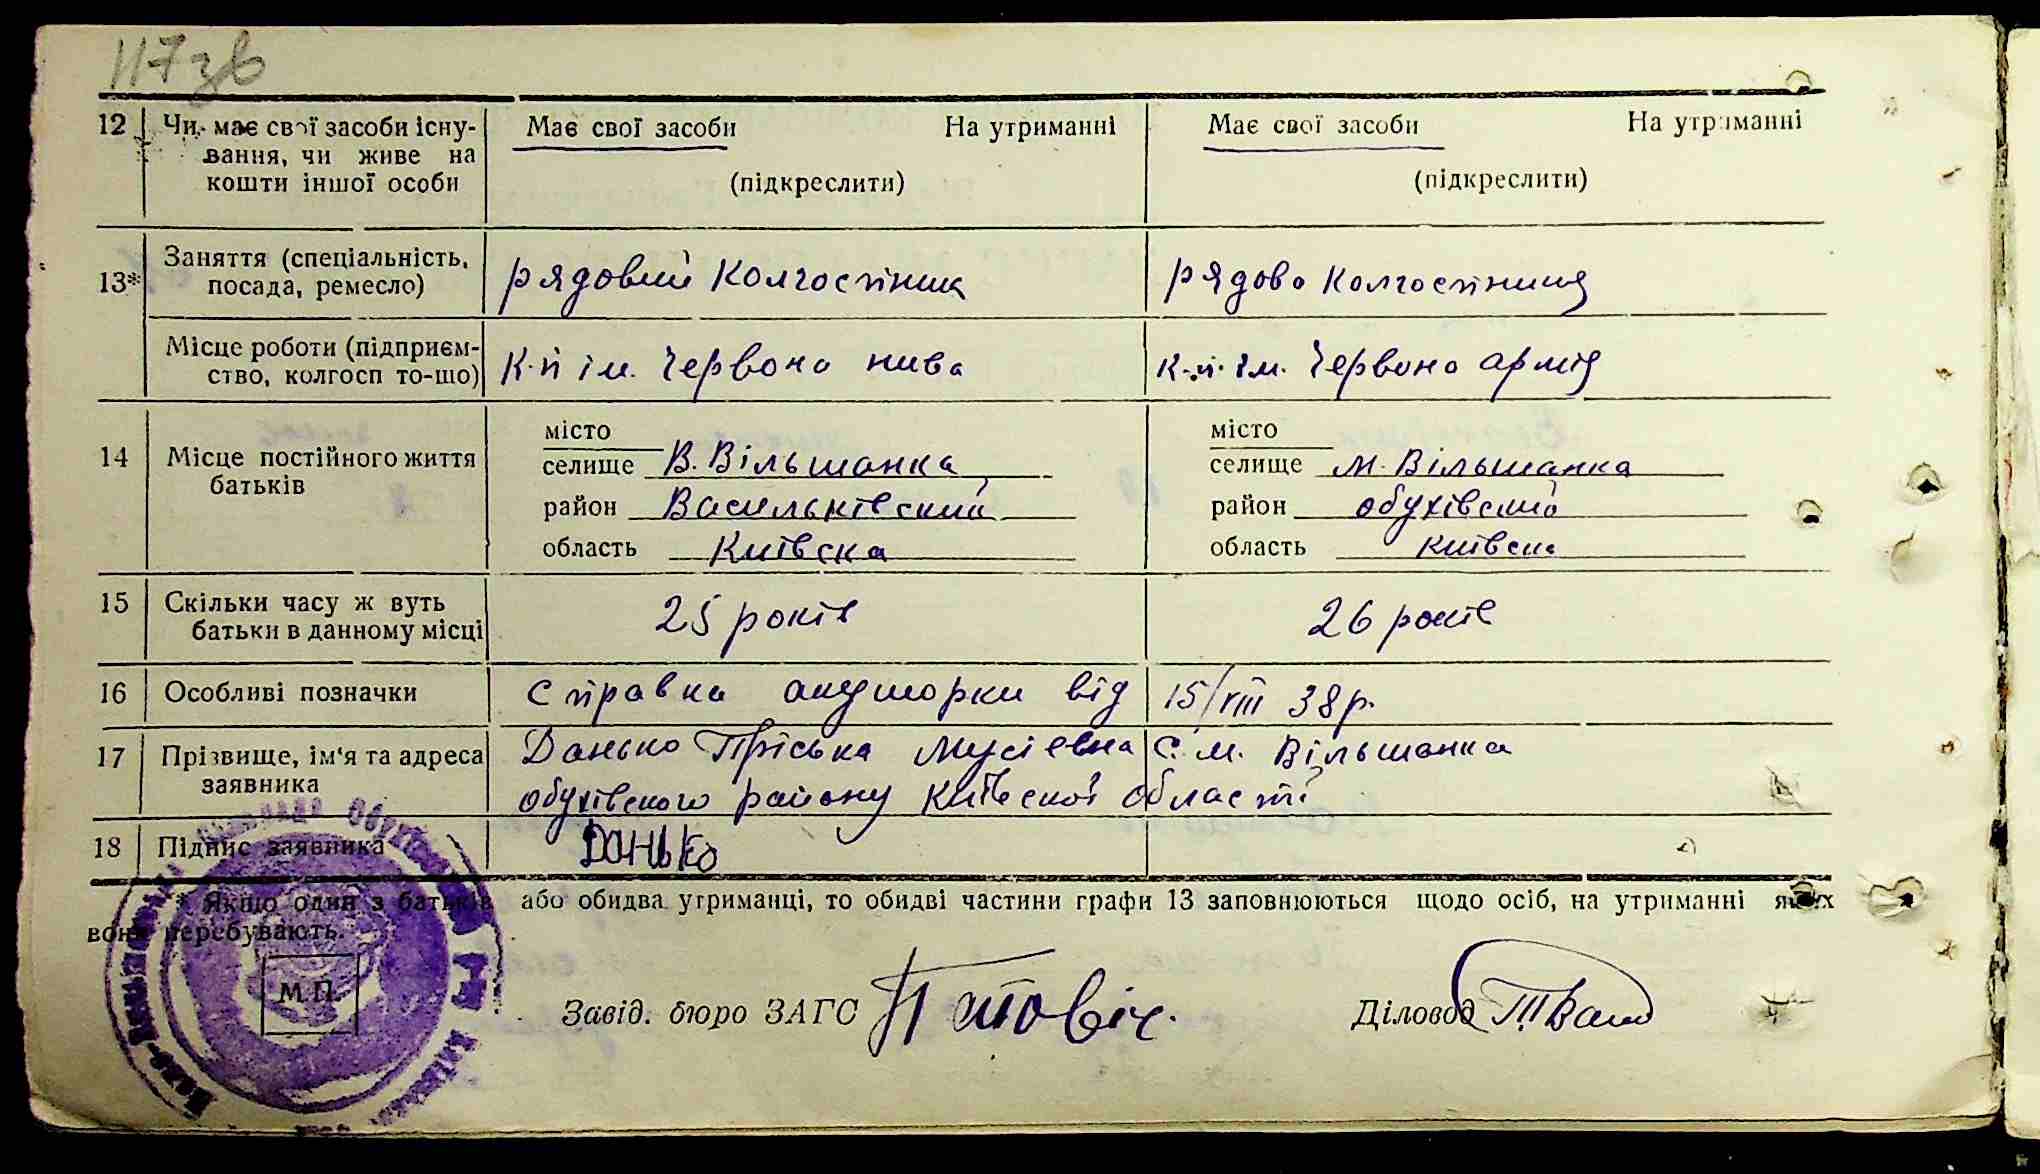 117зв
12 Чи має свої засоби існу- Має свої засоби На утриманні Має свої засоби На утриманні
вання, чи живе на
кошти іншої особи (підкреслити) (підкреслити)
13* Заняття (спеціальність, посада, ремесло) рядовий колгоспник рядова колгоспниця
Місце роботи (підприєм-
ство, колгосп то-що) К-п ім. Червона нива К-п. ім. Червона армія
місто місто
14 Місце постійного життя селище В. Вільшанка селище М. Вільшанка
батьків район Васильківский район обухівский
область Київска область київска
15 Скільки часу ж вуть 25 років 26 років
батьки в данному місці
16 Особливі позначки Справка акушорки від 15/VIII 38 р.
17 Прізвище, ім'я та адреса Данько Пріська Мусіевна С. М. Вільшанка
заявника обухівского району Київскої області
18 Підпис заявника Данько
* Якщо один з батьків або обидва утриманці, то обидві частини графи 13 заповнюються щодо осіб, на утриманні яких
вони перебувають.
М.П.
Завід. бюро ЗАГС Діловод